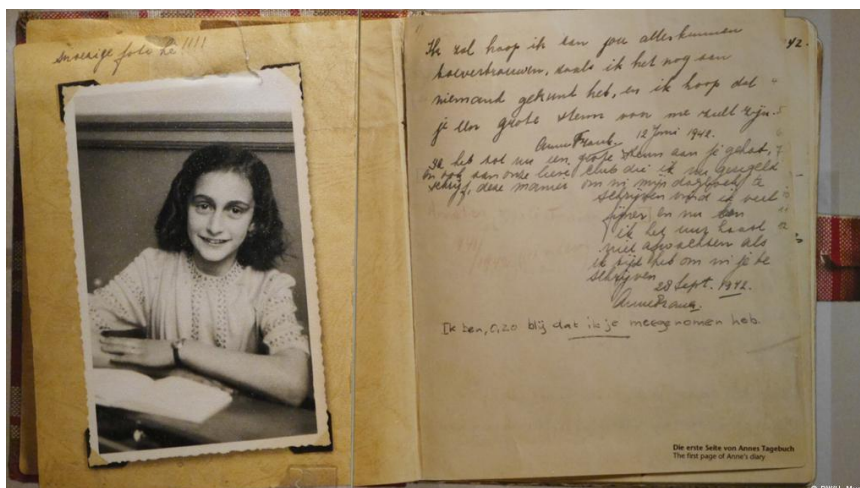 snoezige foto hè!!!!
Ik zal hoop ik aan jou alles kunnen
toevertrouwen, zoals ik het nog aan
niemand gekund heb, en ik hoop dat
je een grote steun voor me zult zijn.
Anne Frank. 12 Juni 1942.
Ik heb tot nu een grote steun aan je gehad,
en ook aan onze lieve club die ik nu geregeld
schrijf, deze manier om in mijn dagboek te
schrijven vind ik veel
fijner en nu kan
ik het uur haast
niet afwachten als
ik tijd heb om in je te
schrijven
28 Sept. 1942.
Anne Frank.
Ik ben, o, zo blij dat ik je meegenomen heb.
42.
Die erste Seite von Annes Tagebuch
The first page of Anne's diary